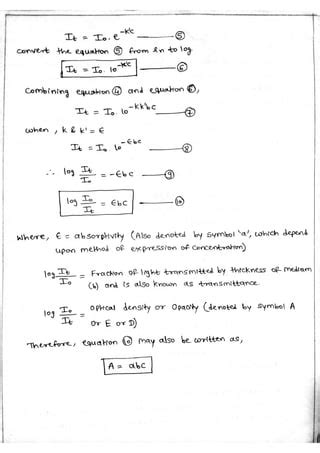 It = Io. e^-k'c —— ⑤
convert the equation ⑤ from ln to log
It = Io. 10^-k'c —— ⑥
Combining equation ④ and equation ⑥,
It = Io. 10^-kk'bc —— ⑦
when, k & k' = ε
It = Io 10^-εbc —— ⑧
∴ log It/Io = -εbc —— ⑨
log Io/It = εbc —— ⑩
Where, ε = absorptivity (Also denoted by symbol 'a', which depend
upon method of expression of concentration)
log It/Io = Fraction of light transmitted by thickness of medium
(b) and is also known as transmittance.
log Io/It = optical density or Opacity (denoted by symbol A
or E or D)
Therefore, equation ⑩ may also be written as,
A = abc